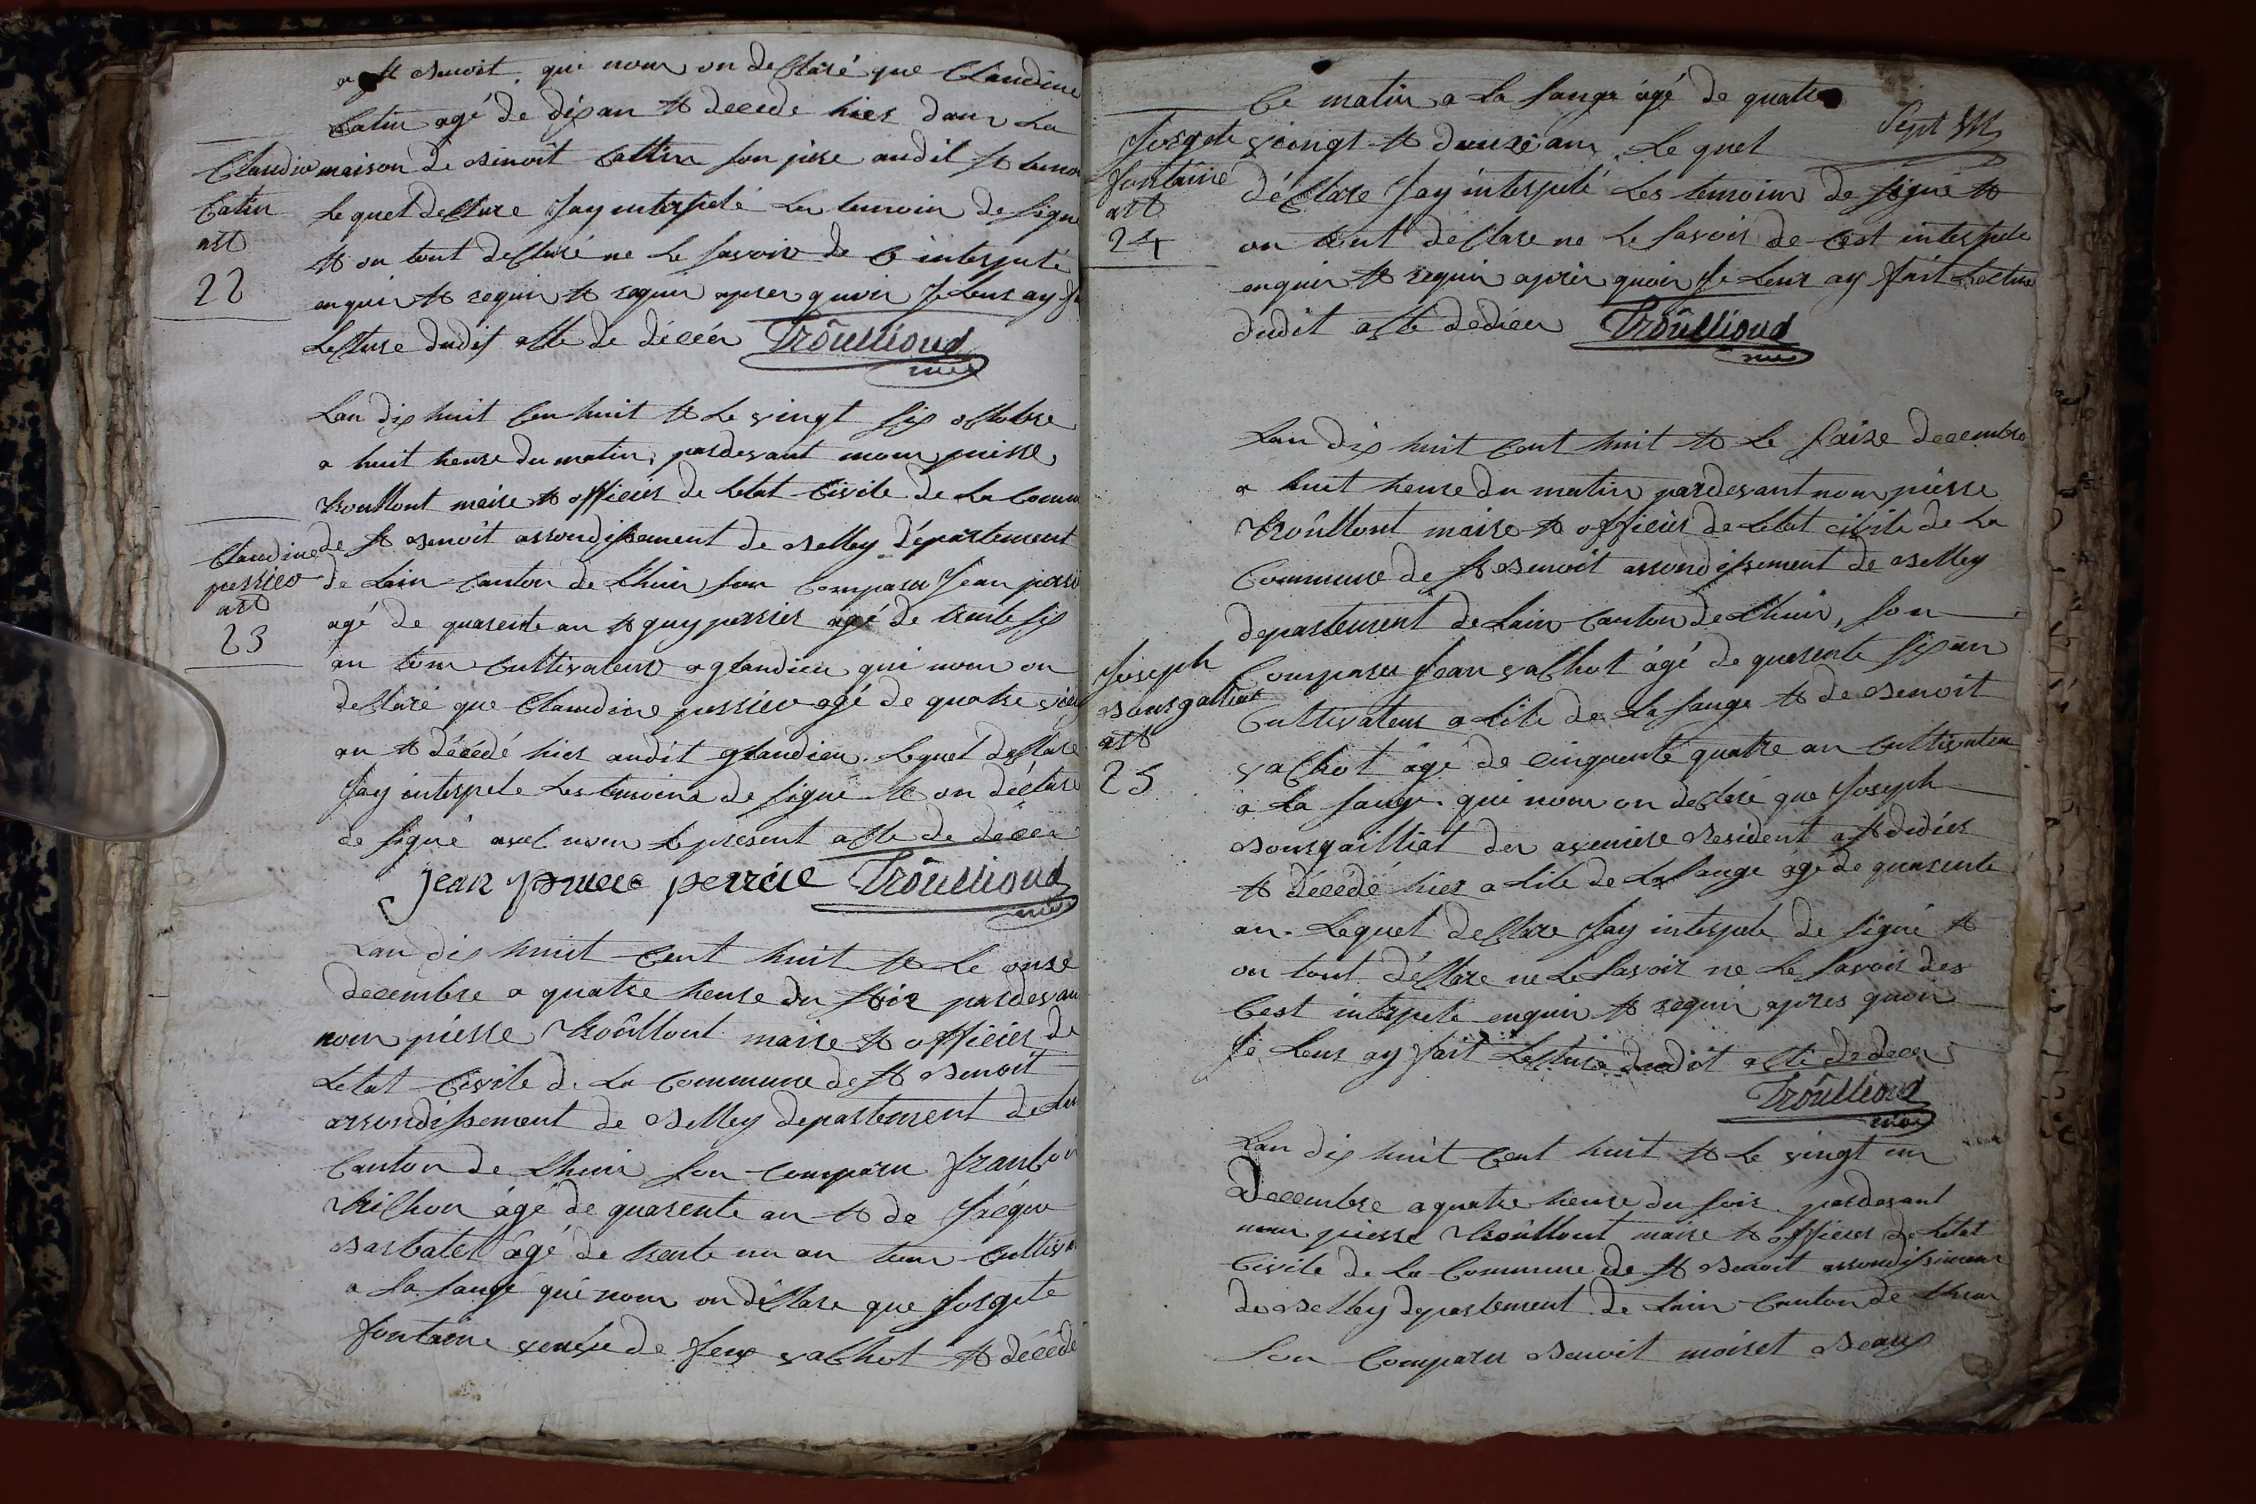 a St Benoit qui nous on declaré que Claudine
Catin agé de dix an et decede hier dans la
Claudine
maison de Benoit Cattin son pere audit St Benoi
Catin
lequel declare Jay interpelé les temoin de signe
art
et on tout declaré ne le savoir de ce interpelé
22
enquir et requir et requir apres quoir Je leur ay
Lecture dudit acte de décéer Troullioud
mer
Lan dix huit cen huit et le vingt six octobre
a huit heure du matin, pardevant nous pierre
trouillout maire et officier de letat Civile de la Comm
Claudine
de St Benoit arrondissement de Belley département
perrier
de Lain Canton de Lhuis son Comparu Jean perri
art
agé de quarente an et guy perrier agé de trente six
23
an tous Cultivateur a glandieu qui nous on
declaré que Claudine perrier agé de quatre ving
an et décédé hier audit glandieu. Lequel declare
Jay interpele les temoins de signé et on declaré
de signé avec nous le present acte de décéer
jean pierre perrère Troullioud
mer
Lan dix huit Cent huit et le onze
decembre a quatre heure du soir pardevan
nous pierre trouillout maire et officier de
Letat Civile de la Commune de St Benoit
arrondissement de Belley departement de Lin
Canton de Lhuis son Comparu francois
trichon agé de quarente an et de Jacque
Barbatel âgé de trente un an tous Cultiva
a la sauge qui nous on déclare que Josepte
fontaine veuve de feux vachot et décédé
Ce matin a la sauge âgé de quatre
Sept
Josepte
vingt et douze an Le quel
fontaine
déclare Jay interpelé les temoins de signé et
art
24
on tout déclare ne le savoir de Cest interpele
enquir et requir après quoir Je leur ay fait lecture
dudit acte dedicer Troullioud
mer
Lan dix huit Cent huit et le saize decembre
a huit heure du matin pardevant nous pierre
trouillout maire et officier de letat civile de la
Commune de St Benoit arrondissement de Belley
departement de Lain Canton de Lhuis, son
Joseph
Comparu Jean vachot âgé de quarente six an
Bourgailliat
Cultivateur a lile de la sauge et de Benoit
art
25
vachot agé de cinquente quatre an Cultivateu
a la sauge. qui nous on declaré que Joseph
Bourgailliat des aveniere Resident a St didier
et décédé hier a lile de la sauge âgé de quarente
an. Lequel declare Jay interpele de signé et
on tout déclare ne le savoir ne le savoir des
Cest interpele enquir et requir apres quoir
Je leur ay fait Lecture dudit acte de décer
Troullioud
mer
Lan dix huit Cent huit et le vingt un
Decembre a quatre heure du soir pardevant
nous pierre trouillout maire et officier de letat
Civile de la Commune de St Benoit arrondissement
de Belley departement de Lain Canton de Lhuis
son Comparu Benoit moiret Beaup